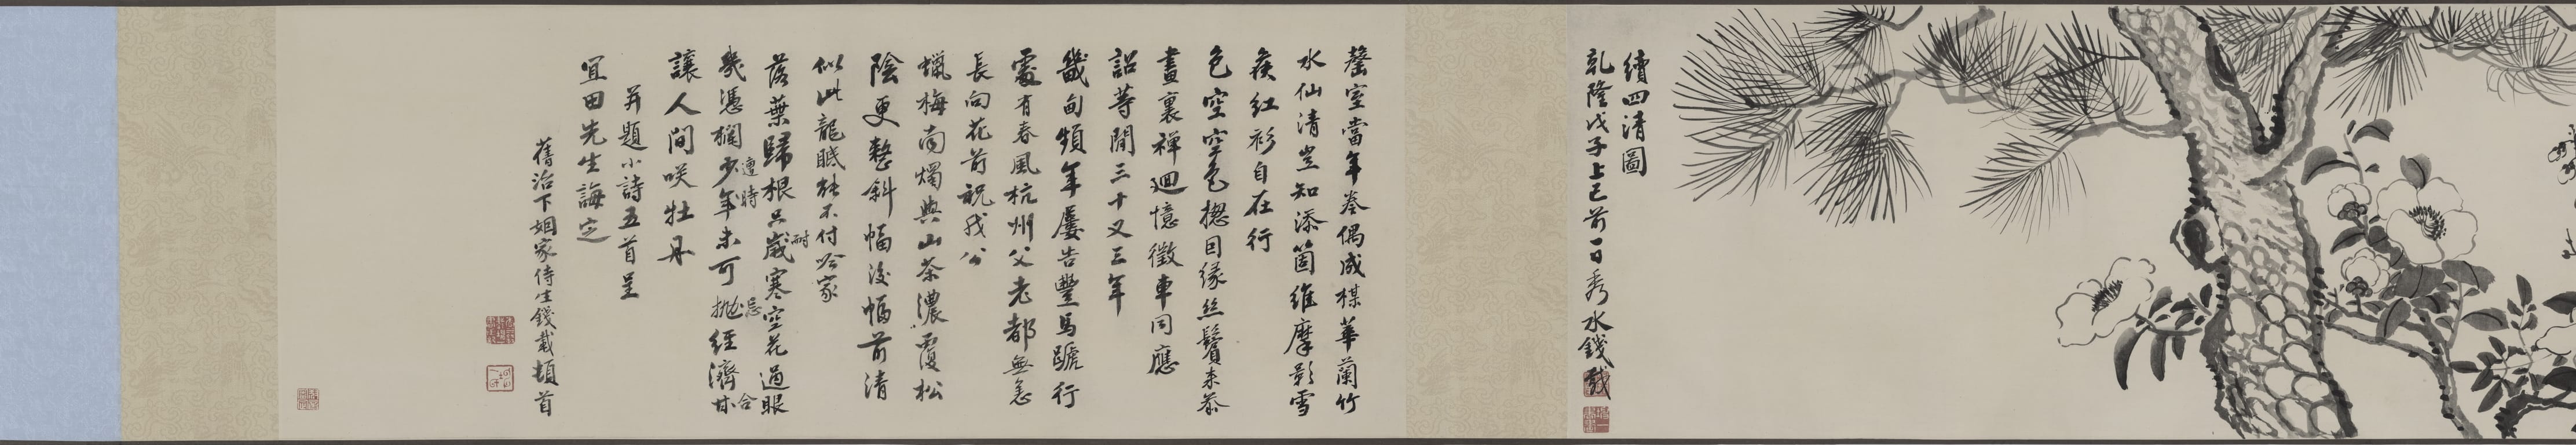 續四清圖
乾隆戊子上巳前一日秀水錢載
罄室當年卷偶成楳華蘭竹
水仙清豈知添箇維摩影雪
後紅衫自在行
色空空色摠因緣絲鬢來參
畫裏禪迴憶徵車同應
詔等閒三十又三年
畿甸頻年屢告豐馬蹏行
處有春風杭州父老都無恙
長向花前祝我公
蠟梅南燭與山茶濃覆松
陰更整斜幅後幅前清
似此龍眠能不付吟家
落葉歸根只歲寒空花過眼
耐
幾憑欄少年未可拋經濟甘
遭時
忌
合
讓人間咲牡丹
并題小詩五首呈
宜田先生誨定
舊治下姻家侍生錢載頓首